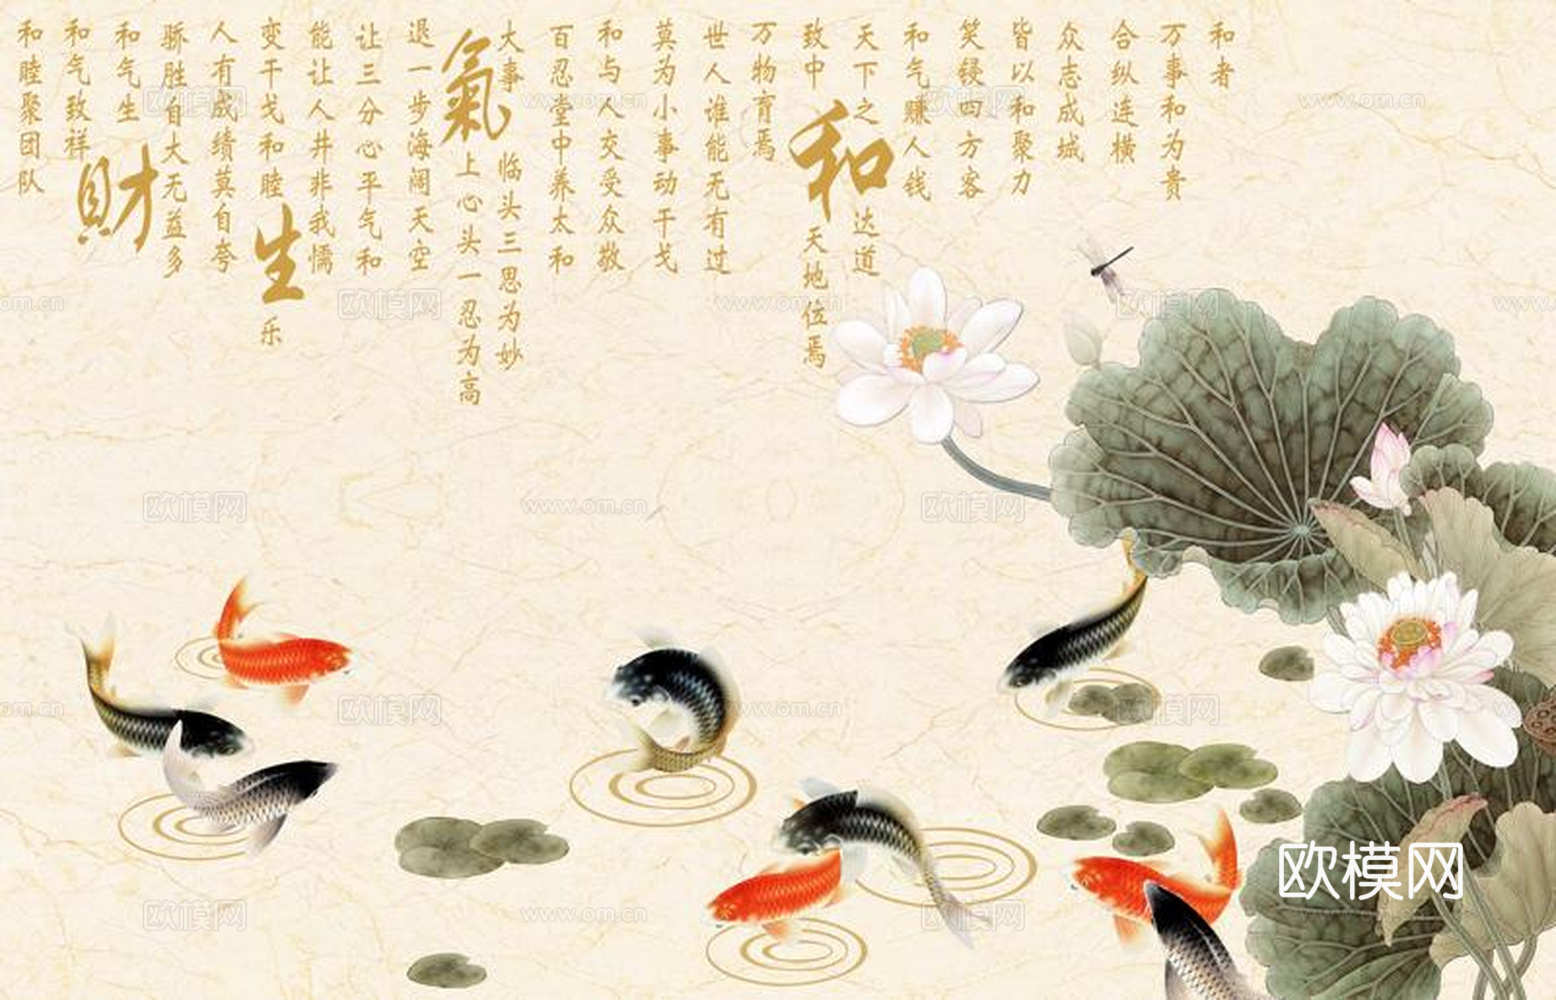 和者
万事和为贵
合纵连横
众志成城
皆以和聚力
笑锓四方客
和气赚人钱
天下之达道
致中和天地位焉
万物育焉
世人谁能无有过
莫为小事动干戈
和与人交受众敬
百忍堂中养太和
大事临头三思为妙
氣上心头一忍为高
退一步海阔天空
让三分心平气和
能让人井非我懦
变干戈和睦生乐
人有成绩莫自夸
骄胜自大无益多
和气生财
和气致祥
和睦聚团队
欧模网
www.om.cn